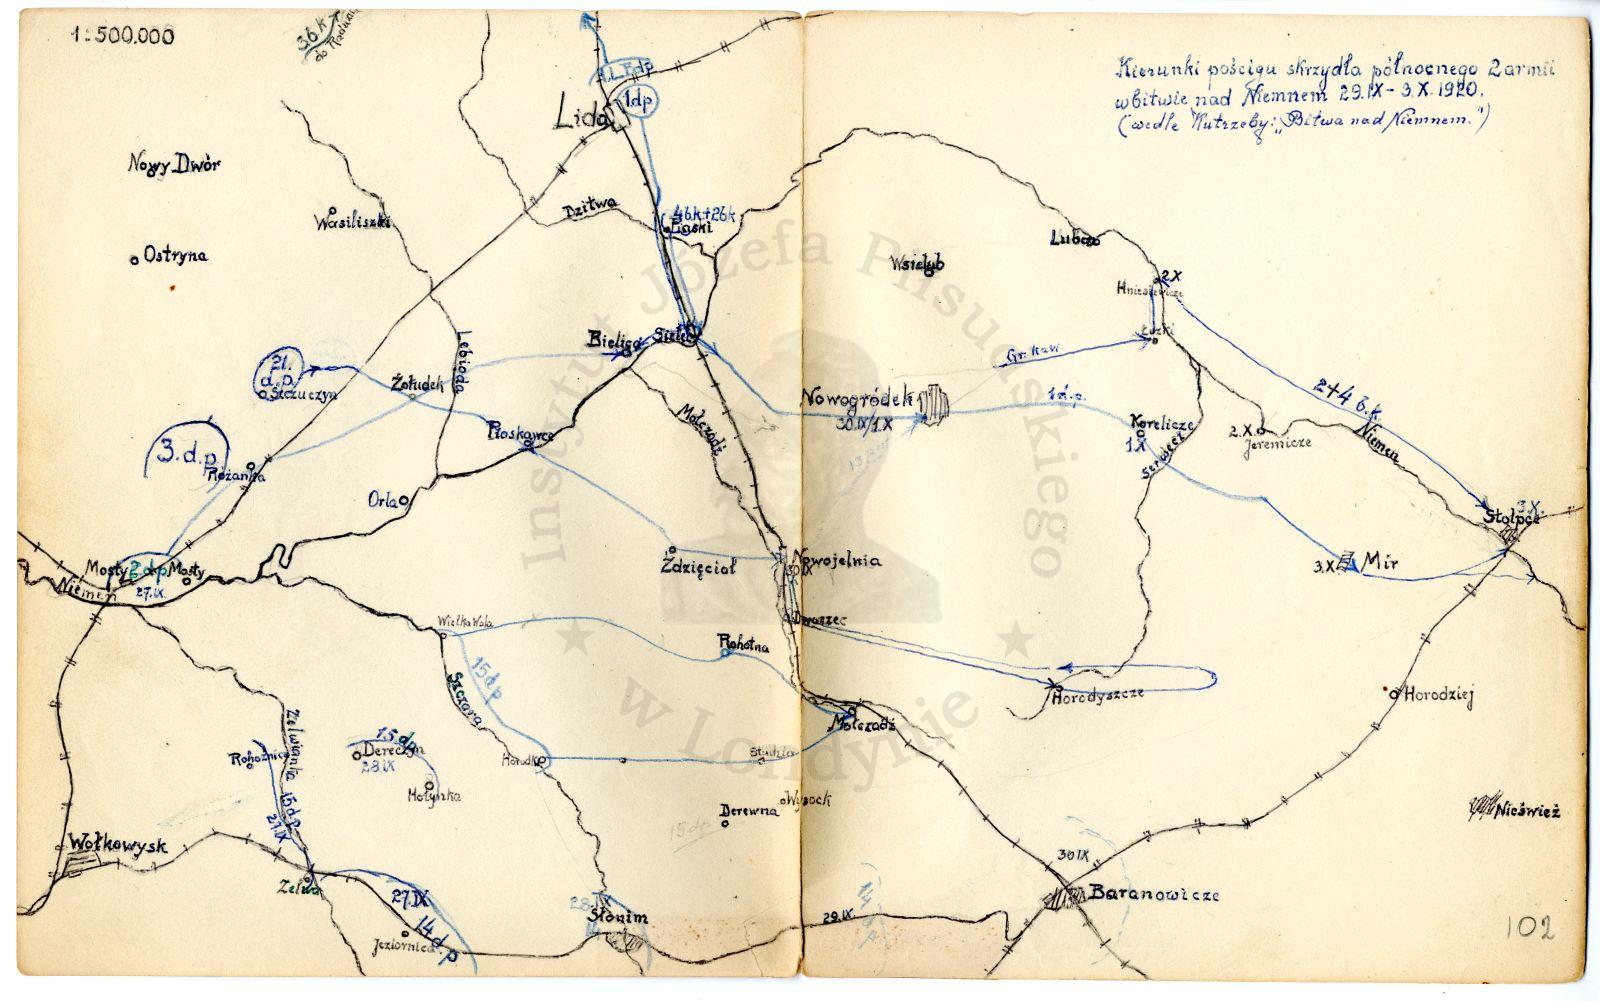 1:500.000
36 k
do Raduni
Kierunki pościgu skrzydła północnego 2 armii
w bitwie nad Niemnem 29.IX - 3.X.1920.
(wedle Kutrzeby: „Bitwa nad Niemnem.")
1.L.B.dp
1dp
Lida
Nowy Dwór
Wasiliszki
Dzitwa
4 b.k + 2 b.k
Laski
Ostryna
Lubcz
Wsielub
2.X
Łozki
Gr. kaw
Lebioda
Bielica
Sielec
21.
d.p.
Szczuczyn
Żołudek
Nowogródek
30.IX/1.X
1d.p.
2+4 b.k.
Niemen
Korelicze
1X
2.X
Jeremicze
Serwecz
Mołczadź
Pioskowce
3.d.p.
Różanka
Orla
3.X.
Stołpce
Mosty
2 dp
Mosty
27.IX.
Niemen
Zdzięcioł
Nowojelnia
30 IX
3.X
Mir
Dworzec
Wielka Wola
Rohotna
15 d.p
Szczara
Horodyszcze
Horodziej
Mołczadź
Zelwianka
Rohoźnica
15 dp
Dereczyn
28.IX
Hołynka
15 d.p.
27.IX
Derewna
Wysock
15 dp
Nieśwież
Wołkowysk
30 IX
Baranowicze
Zelwa
27.IX
14 d.p
Jeziornica
28.IX
Słonim
29.IX.
14 dp
102
Instytut Józefa Piłsudskiego
w Londynie